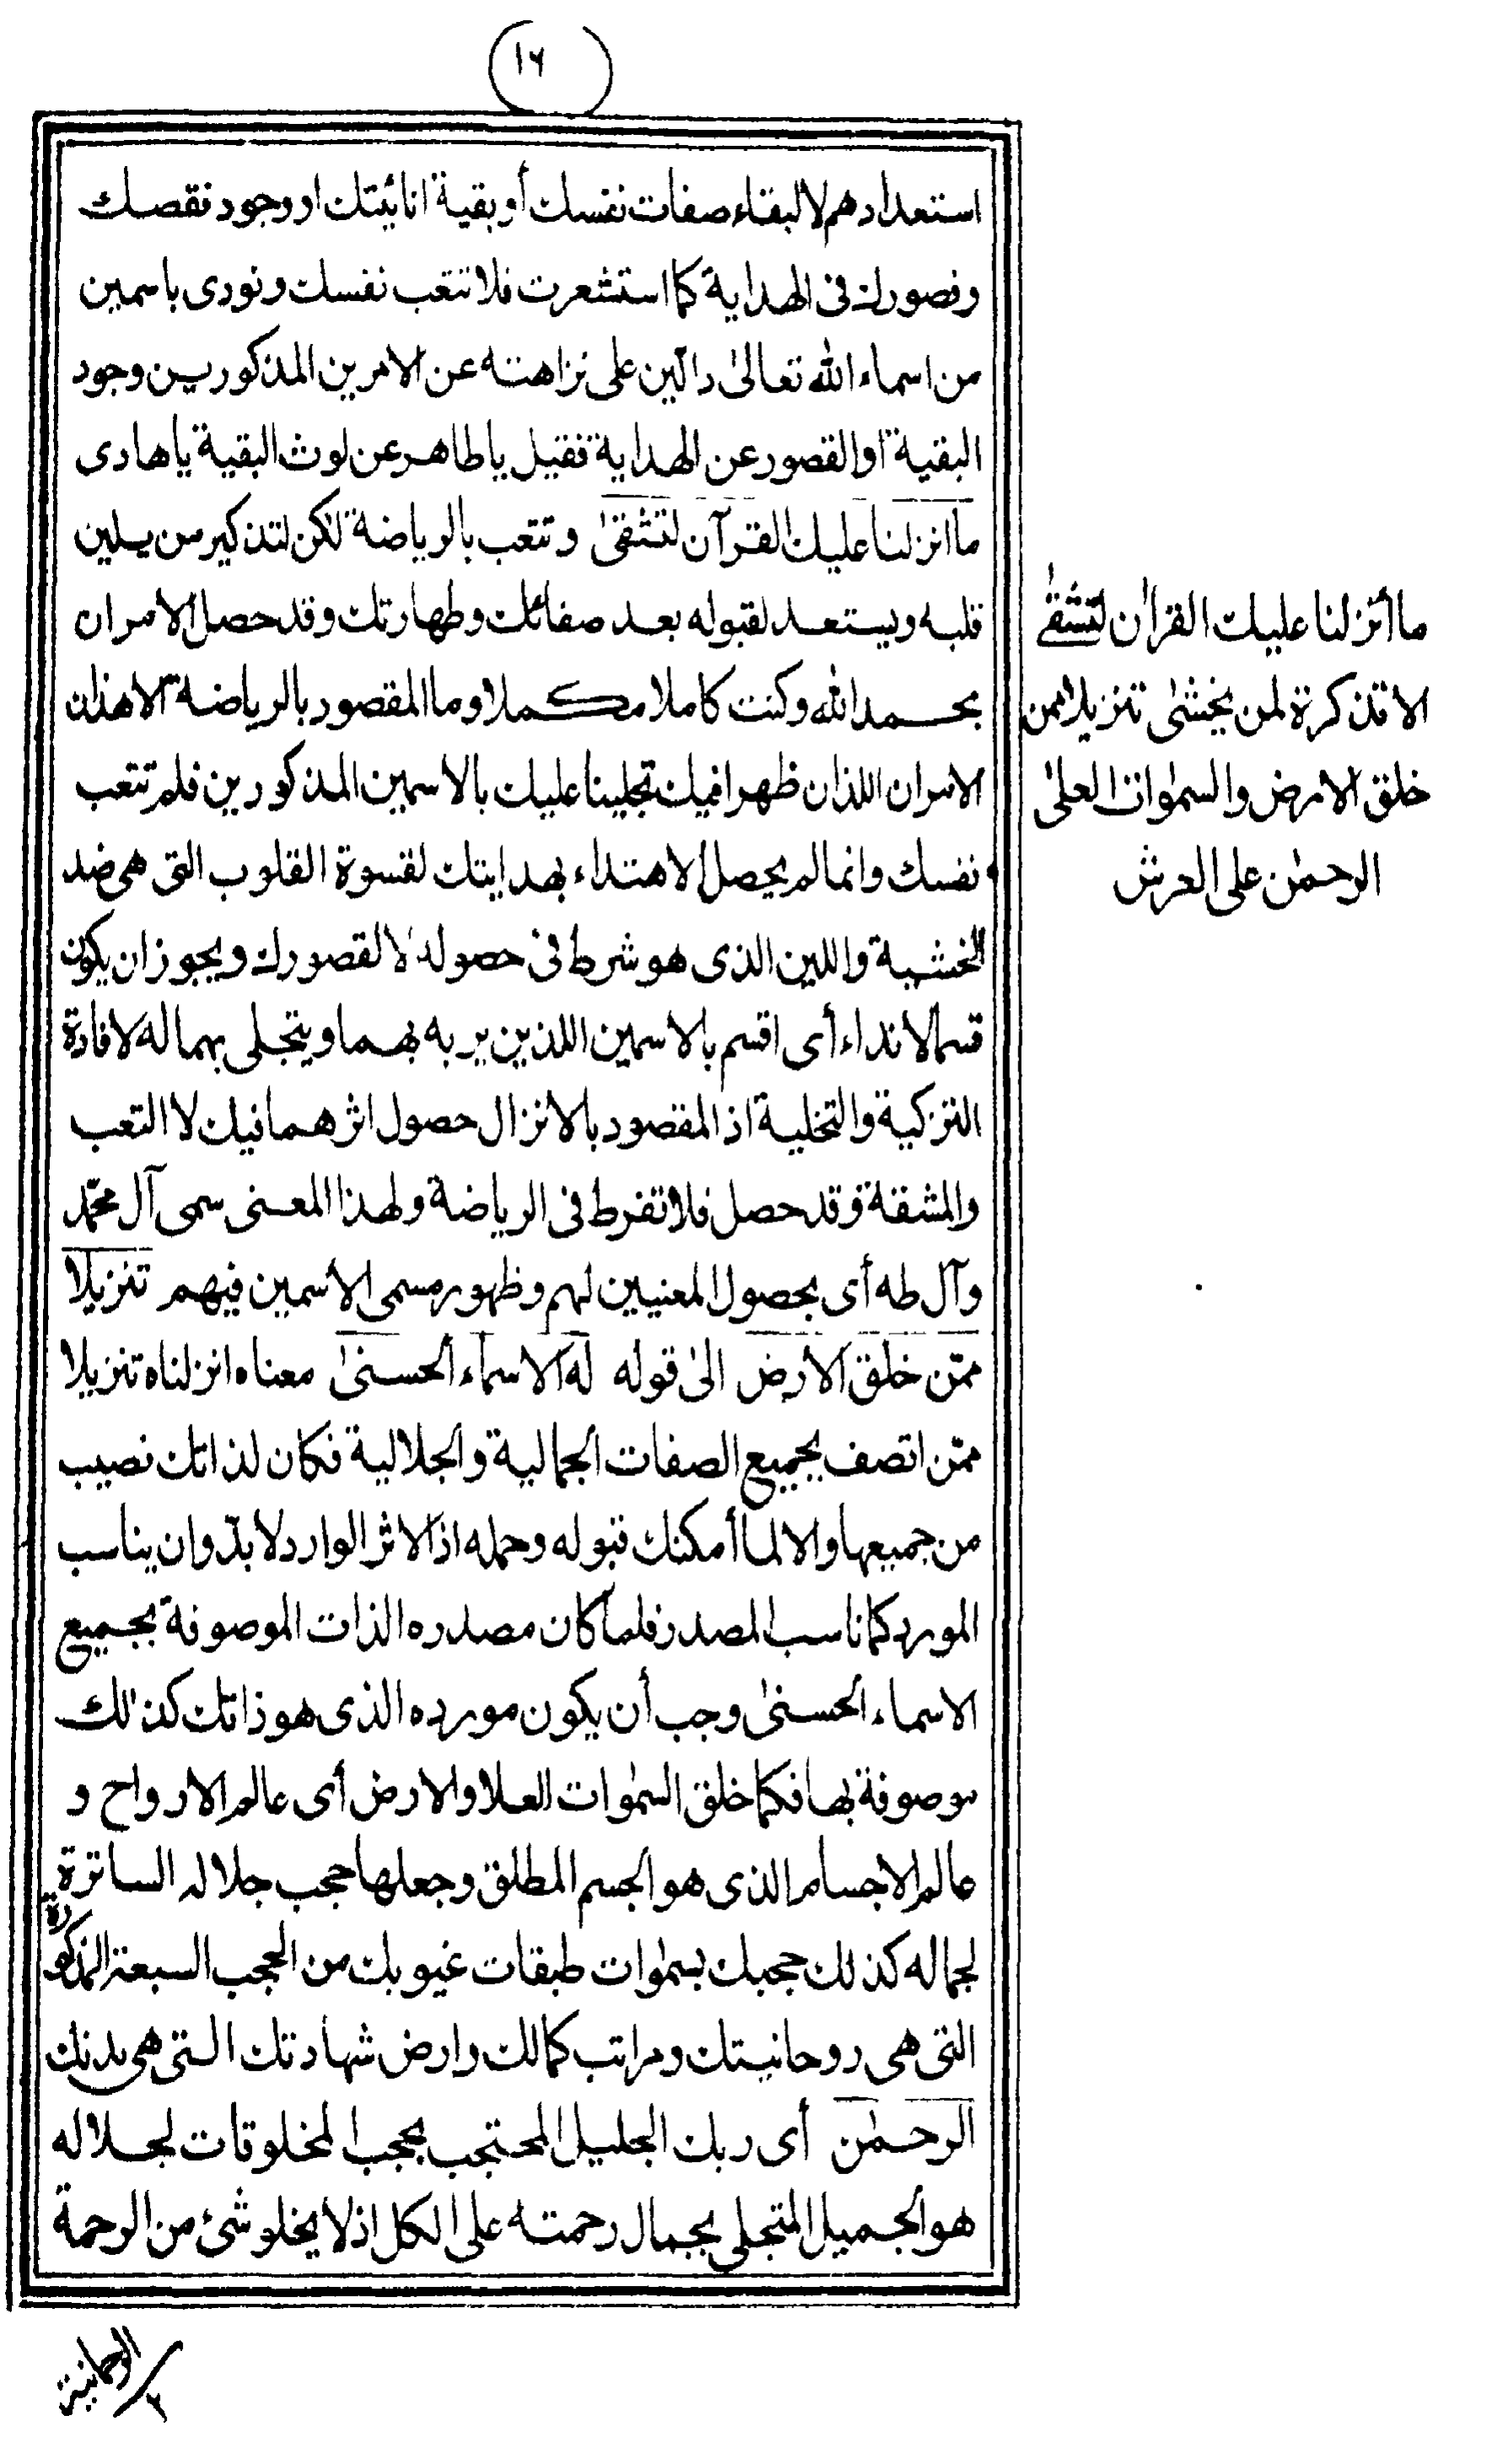 ١٦
استعدادهم لا لبقاء صفات نفسك أو بقية انائيتك او وجود نقصك
وقصورك فى الهداية كما استشعرت فلا تتعب نفسك ونودى باسمين
من اسماء الله تعالىٰ دالّين على نزاهته عن الامرين المذكورين وجود
البقية او القصور عن الهداية فقيل يا طاهر عن لوث البقية يا هادى
ما انزلنا عليك القرآن لتشقىٰ وتتعب بالرياضة لٰكن لتذكير من يلين
قلبه ويستعد لقبوله بعد صفائك وطهارتك وقد حصل الامران
بحمد الله وكنت كاملا مكملا وما المقصود بالرياضة الا هذان
الامران اللذان ظهرا فيك تجلينا عليك بالاسمين المذكورين فلم تتعب
نفسك وانما لم يحصل الاهتداء بهدايتك لقسوة القلوب التى هى ضد
الخشية واللين الذى هو شرط فى حصوله لا لقصورك ويجوز ان يكون
قسما لا نداء أى اقسم بالاسمين اللذين يربه بهما ويتجلى بهما له لافادة
التزكية والتخلية اذ المقصود بالانزال حصول اثرهما فيك لا التعب
والمشقة وقد حصل فلا تفرط فى الرياضة ولهذا المعنى سمى آل محمّد
وآل طه أى بحصول المعنيين لهم وظهور مسمى الاسمين فيهم تنزيلا
ممّن خلق الأرض الىٰ قوله له الاسماء الحسنىٰ معناه انزلناه تنزيلا
ممّن اتصف بجميع الصفات الجمالية والجلالية فكان لذاتك نصيب
من جميعها والا لما أمكنك قبوله وحمله اذ الاثر الوارد لا بدّ وان يناسب
المورد كما ناسب المصدر فلما كان مصدره الذات الموصوفة بجميع
الاسماء الحسنىٰ وجب أن يكون مورده الذى هو ذاتك كذٰلك
موصوفة بها فكما خلق السمٰوات العلا والارض أى عالم الارواح و
عالم الاجسام الذى هو الجسم المطلق وجعلها حجب جلاله الساترة
لجماله كذلك حجبك بسمٰوات طبقات غيوبك من الحجب السبعة المذكورة
التى هى روحانيتك ومراتب كمالك وارض شهادتك التى هى بدنك
الرحمٰن أى ربك الجليل المحتجب بحجب المخلوقات لجلاله
هو الجميل المتجلى بجمال رحمته على الكل اذ لا يخلو شئ من الرحمة
ما أنزلنا عليك القراٰن لتشقىٰ
الا تذكرة لمن يخشىٰ تنزيلا ممن
خلق الارض والسمٰوات العلىٰ
الرحمٰن على العرش
الرحمانية